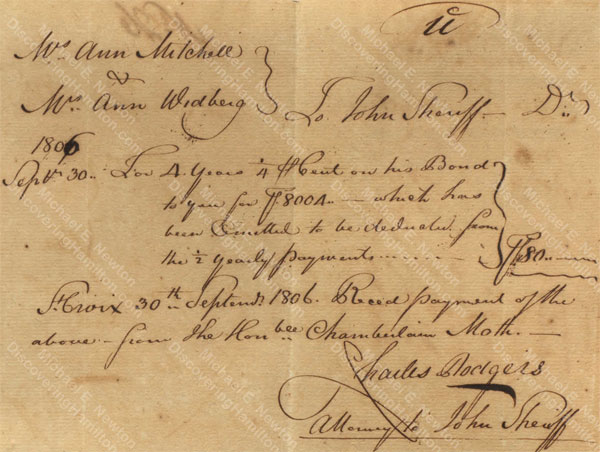 ū
Mrs. Ann Mitchell
&
Mrs. Ann Widberg
To John Sheriff — Dr.
1806
Septbr 30.. For 4 Years ¼ ℔ Cent on his Bond
to you for 8004.. — which has
been Omitted to be deducted from
the ½ yearly payments
80..
St. Croix 30th Septembr 1806. Receed payment of the
above — from the Honbee Chamberlain Moth. —
Charles Rodgers
Attorney to John Sheriff
Michael E. Newton
DiscoveringHamilton.com